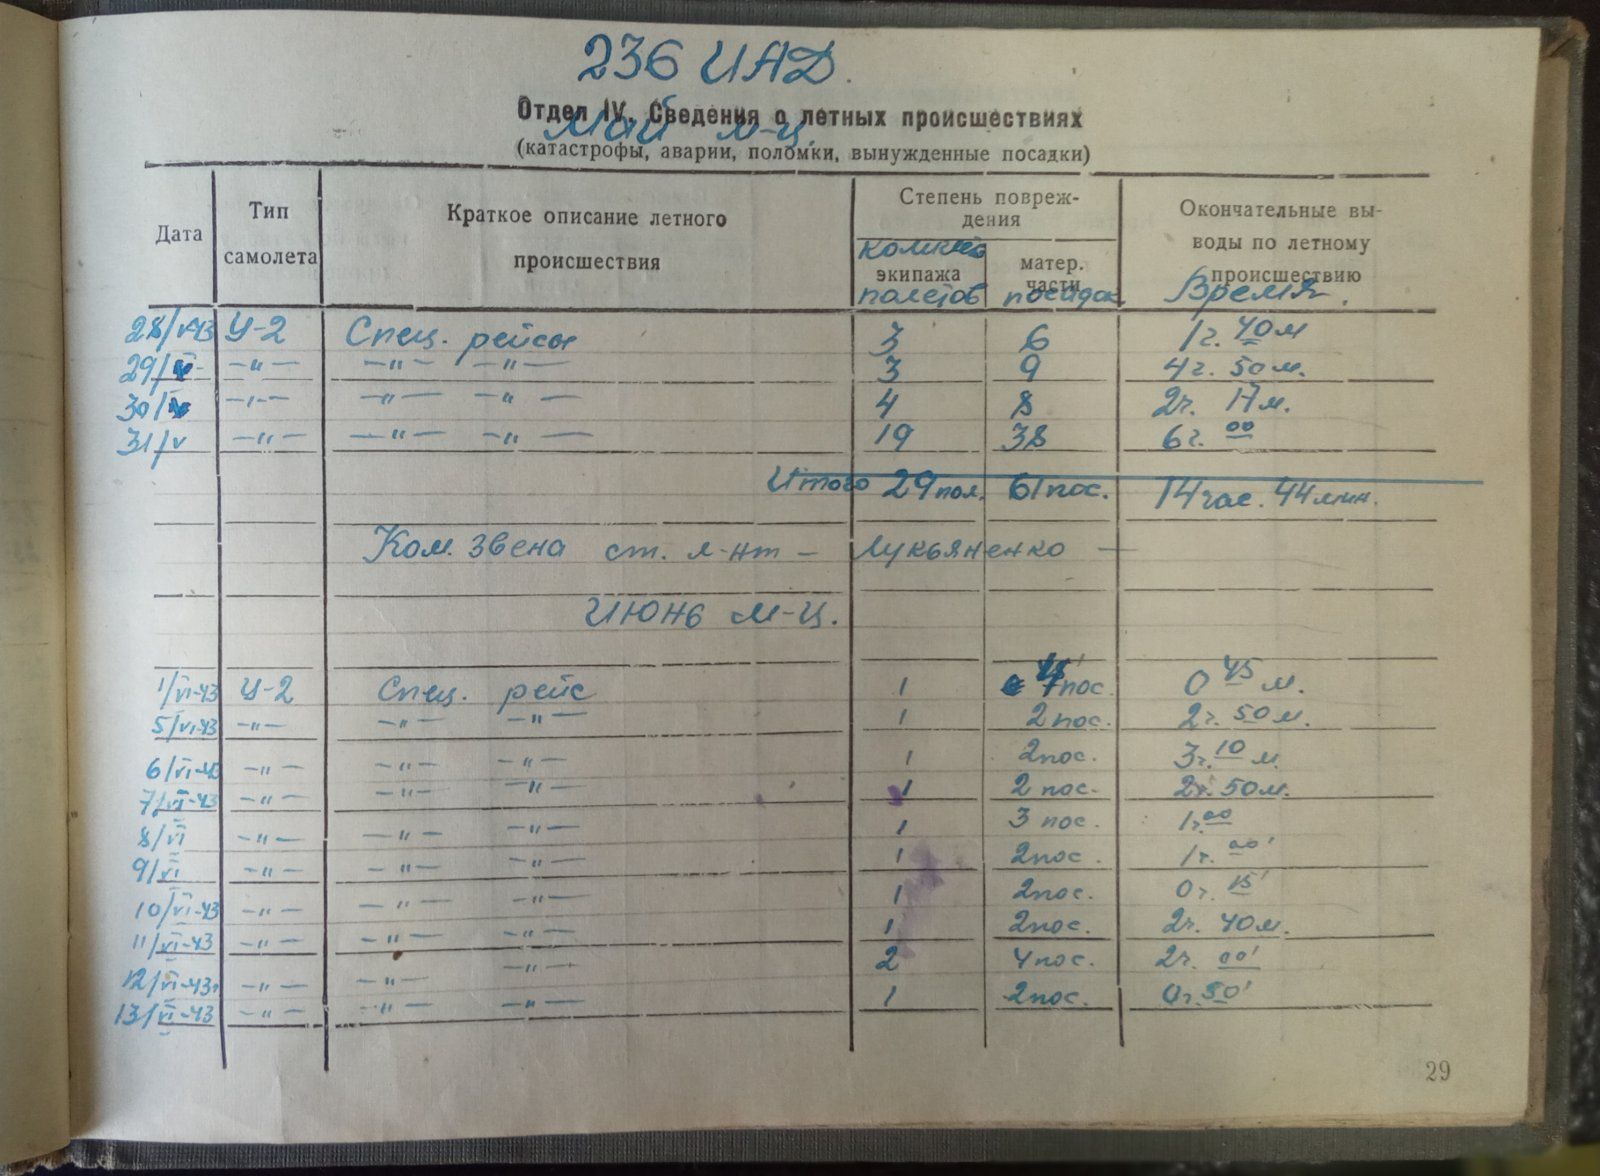 236 ИАД.
Отдел IV. Сведения о летных происшествиях
Май м-ц.
(катастрофы, аварии, поломки, вынужденные посадки)
Дата Тип самолета Краткое описание летного происшествия Степень повреждения экипажа матер. части Окончательные выводы по летному происшествию
полетов посадок Время.
28/V-43 У-2 Спец. рейсы 3 6 1ч. 40м
29/V- —"— —"— —"— 3 9 4ч. 50м.
30/V —"— —"— —"— 4 8 2ч. 17м.
31/V —"— —"— —"— 19 38 6ч. 00
Итого 29 пол. 61 пос. 14 час. 44 мин.
Ком. звена ст. л-нт — Лукьяненко —
Июнь м-ц.
1/VI-43 У-2 Спец. рейс 1 пос. 0 45 м.
5/VI-43 —"— —"— —"— 1 2 пос. 2ч. 50м.
6/VI-43 —"— —"— —"— 1 2 пос. 3ч. 10 м.
7/VI-43 —"— —"— —"— 1 2 пос. 2ч. 50м.
8/VI —"— —"— —"— 1 3 пос. 1ч. 00
9/VI —"— —"— —"— 1 2 пос. 1ч. 00'
10/VI-43 —"— —"— —"— 1 2 пос. 0ч. 15'
11/VI-43 —"— —"— —"— 1 2 пос. 2ч. 40м.
12/VI-43 —"— —"— —"— 2 4 пос. 2ч. 00'
13/VI-43 —"— —"— —"— 1 2 пос. 0ч. 50'
29